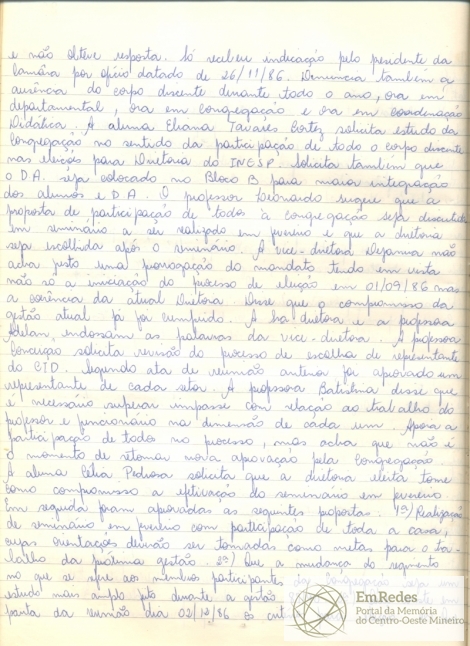 e não obteve resposta. Só recebeu indicação pelo presidente da
Câmara por ofício datado de 26/11/86. Denuncia também a
ausência do corpo discente durante todo o ano, ora em
departamental, ora em Congregação e ora em Coordenação
Didática. A aluna Eliana Tavares Cortez solicita estudo da
Congregação no sentido da participação de todo o corpo discente
nas eleições para Diretoria do INESP. Solicita também que
o D.A. seja colocado no Bloco B para maior integração
dos alunos e D.A. O professor Leonardo sugere que a
proposta de participação de todos à congregação seja discutida
em seminário a ser realizado em fevereiro e que a diretoria
seja escolhida após o seminário. A vice-diretora Dejanira não
acha justo uma prorrogação do mandato tendo em vista
não só a iniciação do processo de eleição em 01/09/86 mas
a carência da atual Diretora. Disse que o compromisso da
gestão atual já foi cumprido. A diretora e a professora
endossam as palavras da vice-diretora. A professora
Conceição solicita revisão do processo de escolha de representante
do CTD. Segundo ata de reunião anterior foi aprovado um
representante de cada setor. A professora Batistina disse que
é necessário superar impasse com relação ao trabalho do
professor e funcionário na dimensão de cada um. Apoia a
participação de todos no processo, mas acha que não é
o momento de retomar nova aprovação pela Congregação.
A aluna Célia Pedrosa solicita que a diretora eleita tome
como compromisso a efetivação do seminário em fevereiro
Em seguida foram aprovadas as seguintes propostas. 1ª) Realização
de seminário em fevereiro com participação de toda a casa,
cujas orientações deverão ser tomadas como metas para o tra-
balho da próxima gestão. 2ª) Que a mudança do regimento
no que se refere aos membros participantes da Congregação seja um
estudo mais amplo feito durante a gestão
pauta da reunião dia 02/12/86
EmRedes
Portal da Memória
do Centro-Oeste Mineiro